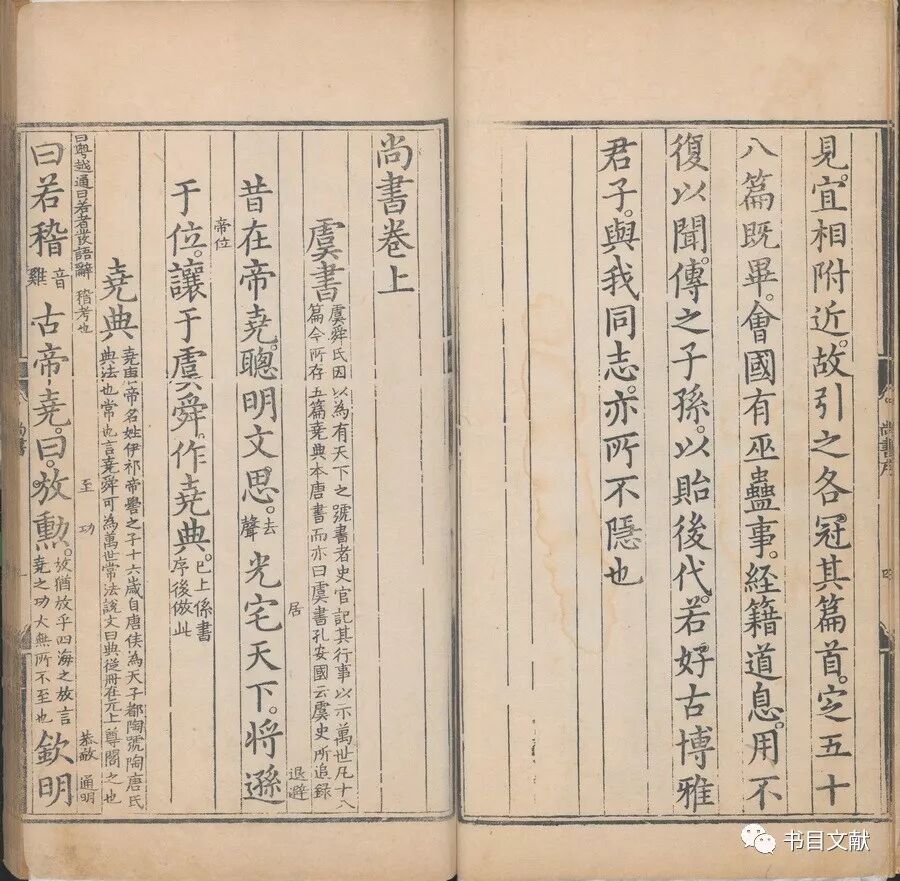 見。宜相附近。故引之各冠其篇首。定五十
八篇既畢。會國有巫蠱事。経籍道息。用不
復以聞。傳之子孫。以貽後代。若好古博雅
君子。與我同志。亦所不隱也
尚書序
尚書卷上
虞書
虞舜氏因以為有天下之號書者史官記其行事以示萬世凡十八
篇今所存五篇堯典本唐書而亦曰虞書孔安國云虞史所追錄
昔在帝堯。聰明文思。去聲光宅天下。將遜
居 退避
于位。讓于虞舜。作堯典。已上係書序後倣此
帝位
堯典
堯唐帝名姓伊祁帝嚳之子十六歲自唐侯為天子都陶號陶唐氏
典法也常也言堯舜可為萬世常法說文曰典從冊在兀上尊閣之也
曰粵越通曰若者發語辭 稽考也 至 功 恭敬 通明
曰若稽音雞古帝堯。曰。放勲。放猶放乎四海之放言堯之功大無所不至也欽明
尚書
书目文献